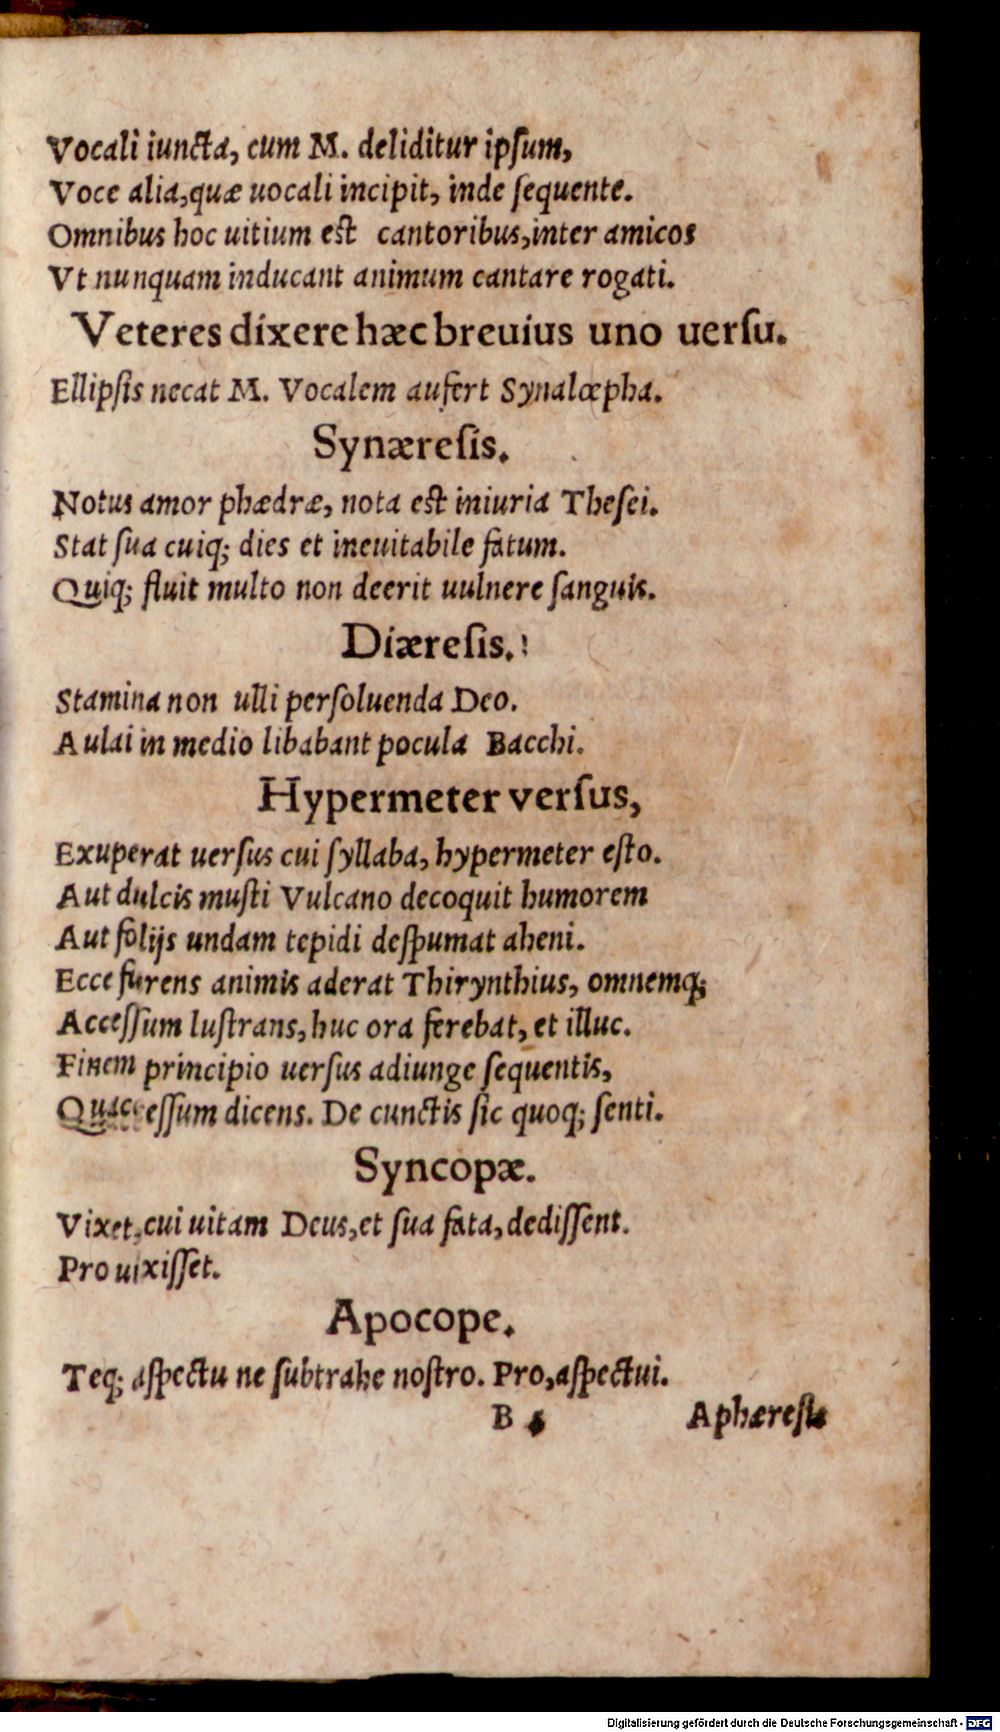 Vocali iuncta, cum M. deliditur ipſum,
Voce alia,quæ uocali incipit, inde ſequente.
Omnibus hoc uitium est cantoribus,inter amicos
Vt nunquam inducant animum cantare rogati.
Veteres dixere hæc breuius uno uerſu.
Ellipſis necat M. Vocalem aufert Synalœpha.
Synæreſis.
Notus amor phædræ, nota est iniuria Theſei.
Stat ſua cuiq; dies et ineuitabile fatum.
Quiq; fluit multo non deerit uulnere ſanguis.
Diæreſis.
Stamina non ulli perſoluenda Deo.
Aulai in medio libabant pocula Bacchi.
Hypermeter verſus,
Exuperat uerſus cui ſyllaba, hypermeter eſto.
Aut dulcis muſti Vulcano decoquit humorem
Aut folijs undam tepidi deſpumat aheni.
Ecce furens animis aderat Thirynthius, omnemq;
Acceſſum luſtrans, huc ora ferebat, et illuc.
Finem principio uerſus adiunge ſequentis,
Quacceſſum dicens. De cunctis ſic quoq; ſenti.
Syncopæ.
Vixet,cui uitam Deus,et ſua fata,dediſſent.
Pro uixiſſet.
Apocope.
Teq; aſpectu ne ſubtrahe noſtro. Pro,aſpectui.
B Aphæreſis
Digitalisierung gefördert durch die Deutsche Forschungsgemeinschaft - DFG